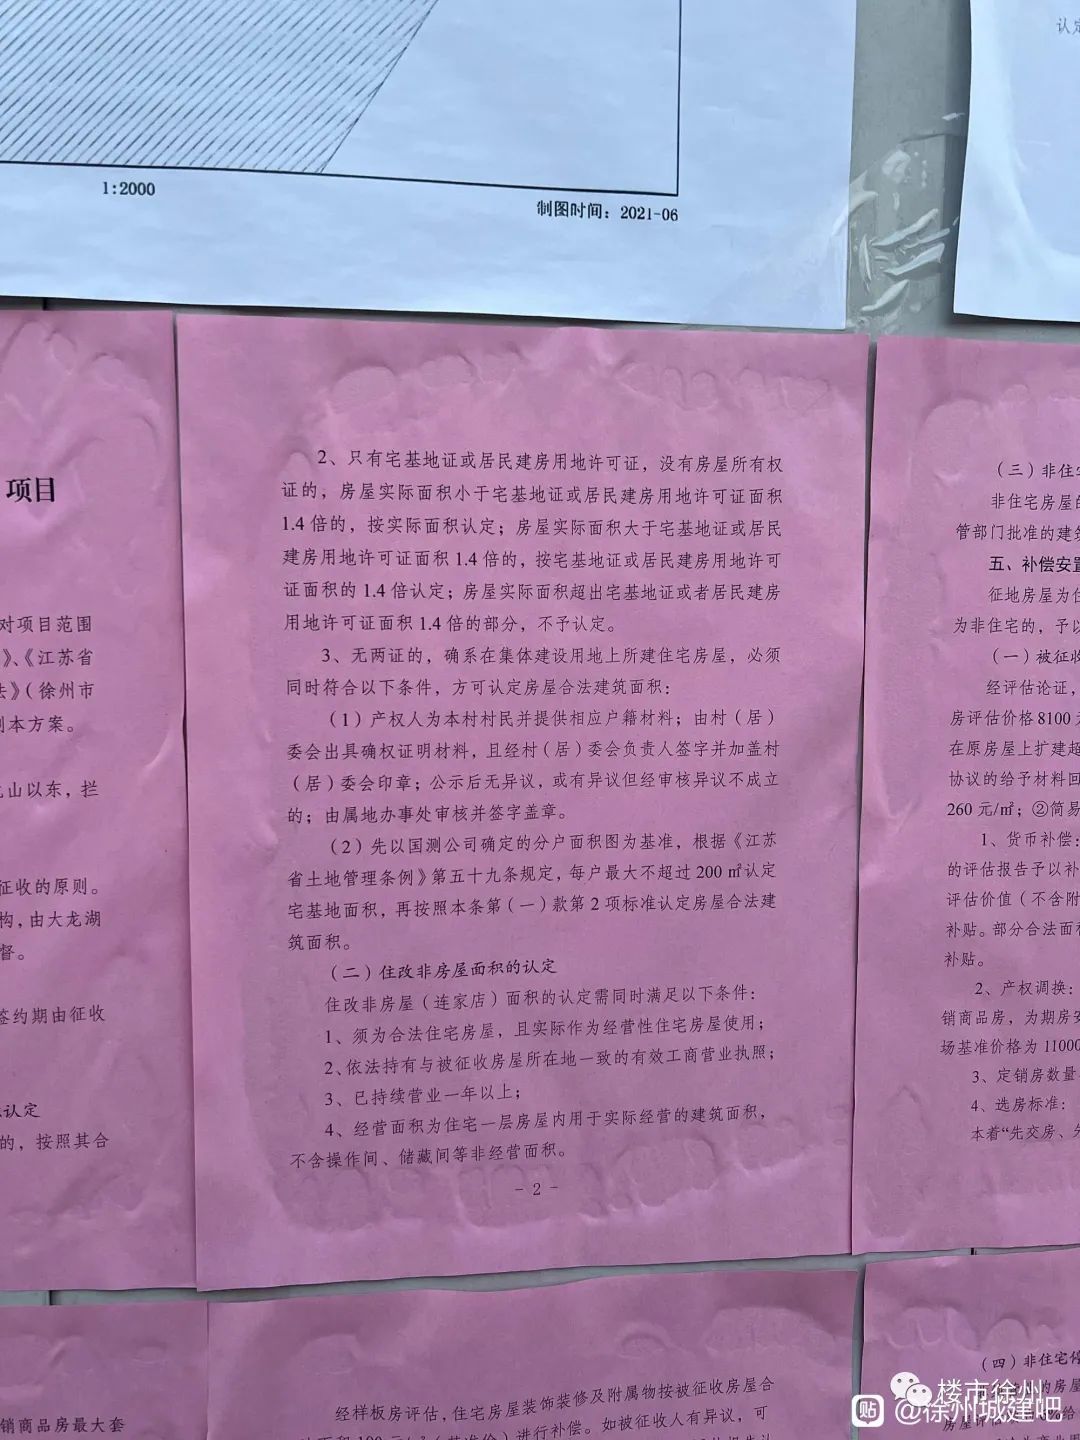 认定
1:2000
制图时间：2021-06
项目
对项目范围
》、《江苏省
法》（徐州市
制本方案。
山以东，拦
征收的原则。
构，由大龙湖
督。
签约期由征收
认定
的，按照其合
2、只有宅基地证或居民建房用地许可证，没有房屋所有权
证的，房屋实际面积小于宅基地证或居民建房用地许可证面积
1.4 倍的，按实际面积认定；房屋实际面积大于宅基地证或居民
建房用地许可证面积 1.4 倍的，按宅基地证或居民建房用地许可
证面积的 1.4 倍认定；房屋实际面积超出宅基地证或者居民建房
用地许可证面积 1.4 倍的部分，不予认定。
3、无两证的，确系在集体建设用地上所建住宅房屋，必须
同时符合以下条件，方可认定房屋合法建筑面积：
（1）产权人为本村村民并提供相应户籍材料；由村（居）
委会出具确权证明材料，且经村（居）委会负责人签字并加盖村
（居）委会印章；公示后无异议，或有异议但经审核异议不成立
的；由属地办事处审核并签字盖章。
（2）先以国测公司确定的分户面积图为基准，根据《江苏
省土地管理条例》第五十九条规定，每户最大不超过 200 ㎡认定
宅基地面积，再按照本条第（一）款第 2 项标准认定房屋合法建
筑面积。
（二）住改非房屋面积的认定
住改非房屋（连家店）面积的认定需同时满足以下条件：
1、须为合法住宅房屋，且实际作为经营性住宅房屋使用；
2、依法持有与被征收房屋所在地一致的有效工商营业执照；
3、已持续营业一年以上；
4、经营面积为住宅一层房屋内用于实际经营的建筑面积，
不含操作间、储藏间等非经营面积。
- 2 -
（三）非住宅
非住宅房屋的
管部门批准的建筑
五、补偿安置
征地房屋为住
为非住宅的，予以
（一）被征收
经评估论证，
房评估价格 8100
在原房屋上扩建超
协议的给予材料回
260 元/㎡；②简易
1、货币补偿：
的评估报告予以补
评估价值（不含附
补贴。部分合法面积
补贴。
2、产权调换：
销商品房，为期房安
场基准价格为 11000
3、定销房数量
4、选房标准：
本着“先交房、先
销商品房最大套
经样板房评估，住宅房屋装饰装修及附属物按被征收房屋合
面积 100 元/㎡（基准价）进行补偿。如被征收人有异议，可
（四）非住宅停
的房屋
房屋评估
楼市徐州
贴 @徐州城建吧